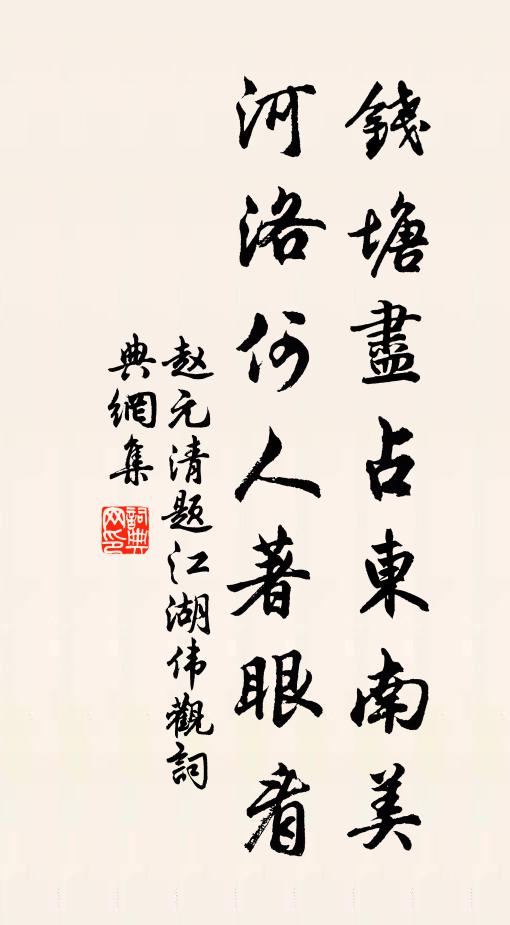 錢塘盡占東南美
河洛何人著眼看
赵元清题江湖伟觀詞
典網集
詞典
网印